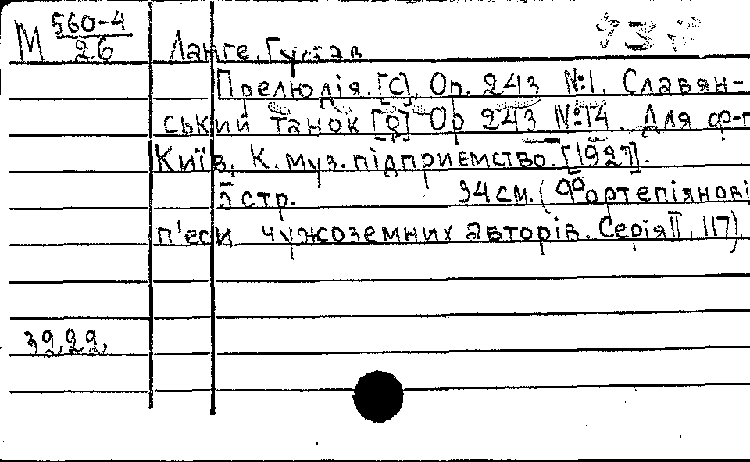 М 560-4
26
Ланге, Густав
Прелюдія. [С]. Ор. 243 №1. Славян-
ський танок [D] Ор 243 №14. Для ф-п
Київ, К. муз. підприємство. [1927].
5 стр. 34 см. (Фортепіянові
п'єси чужоземних авторів. Серія II, 117)
3922